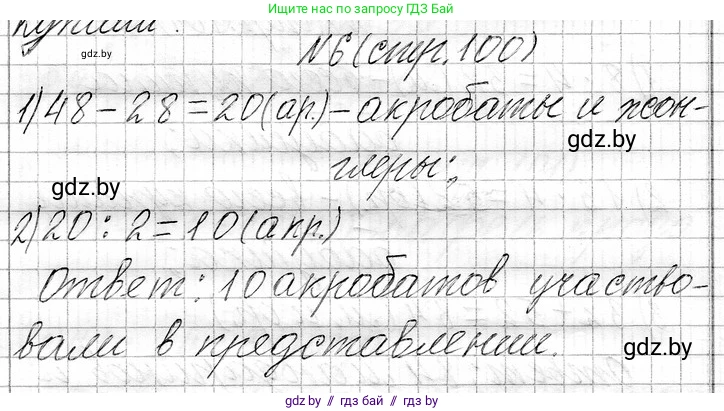 Ищите нас по запросу ГДЗ Бай
купили.
gdz.by
№6 (стр. 100)
1) 48 - 28 = 20 (ар.) - акробаты и жон-
gdz.by
глеры;
gdz.by
2) 20 : 2 = 10 (акр.)
Ответ: 10 акробатов участво-
вали в представлении.
gdz.by
gdz.by // гдз бай // gdz.by